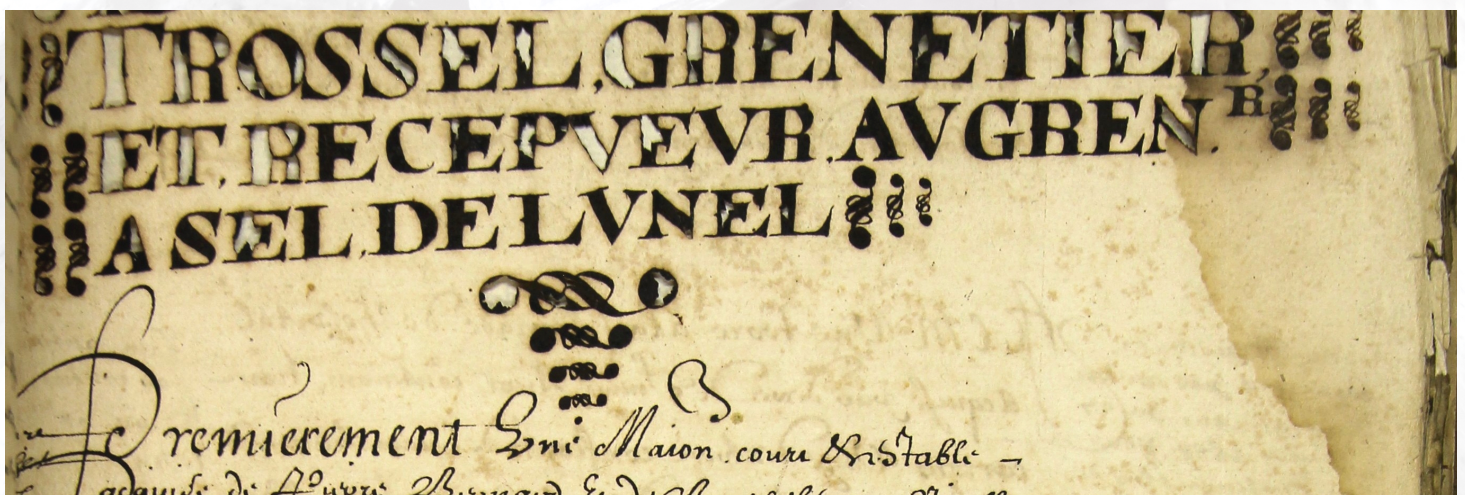 TROSSEL, GRENETIER,
ET, RECEPVEVR. AVGREN. R
A SEL, DE LVNEL
Premierement Vne Maion court & estable
acquise de